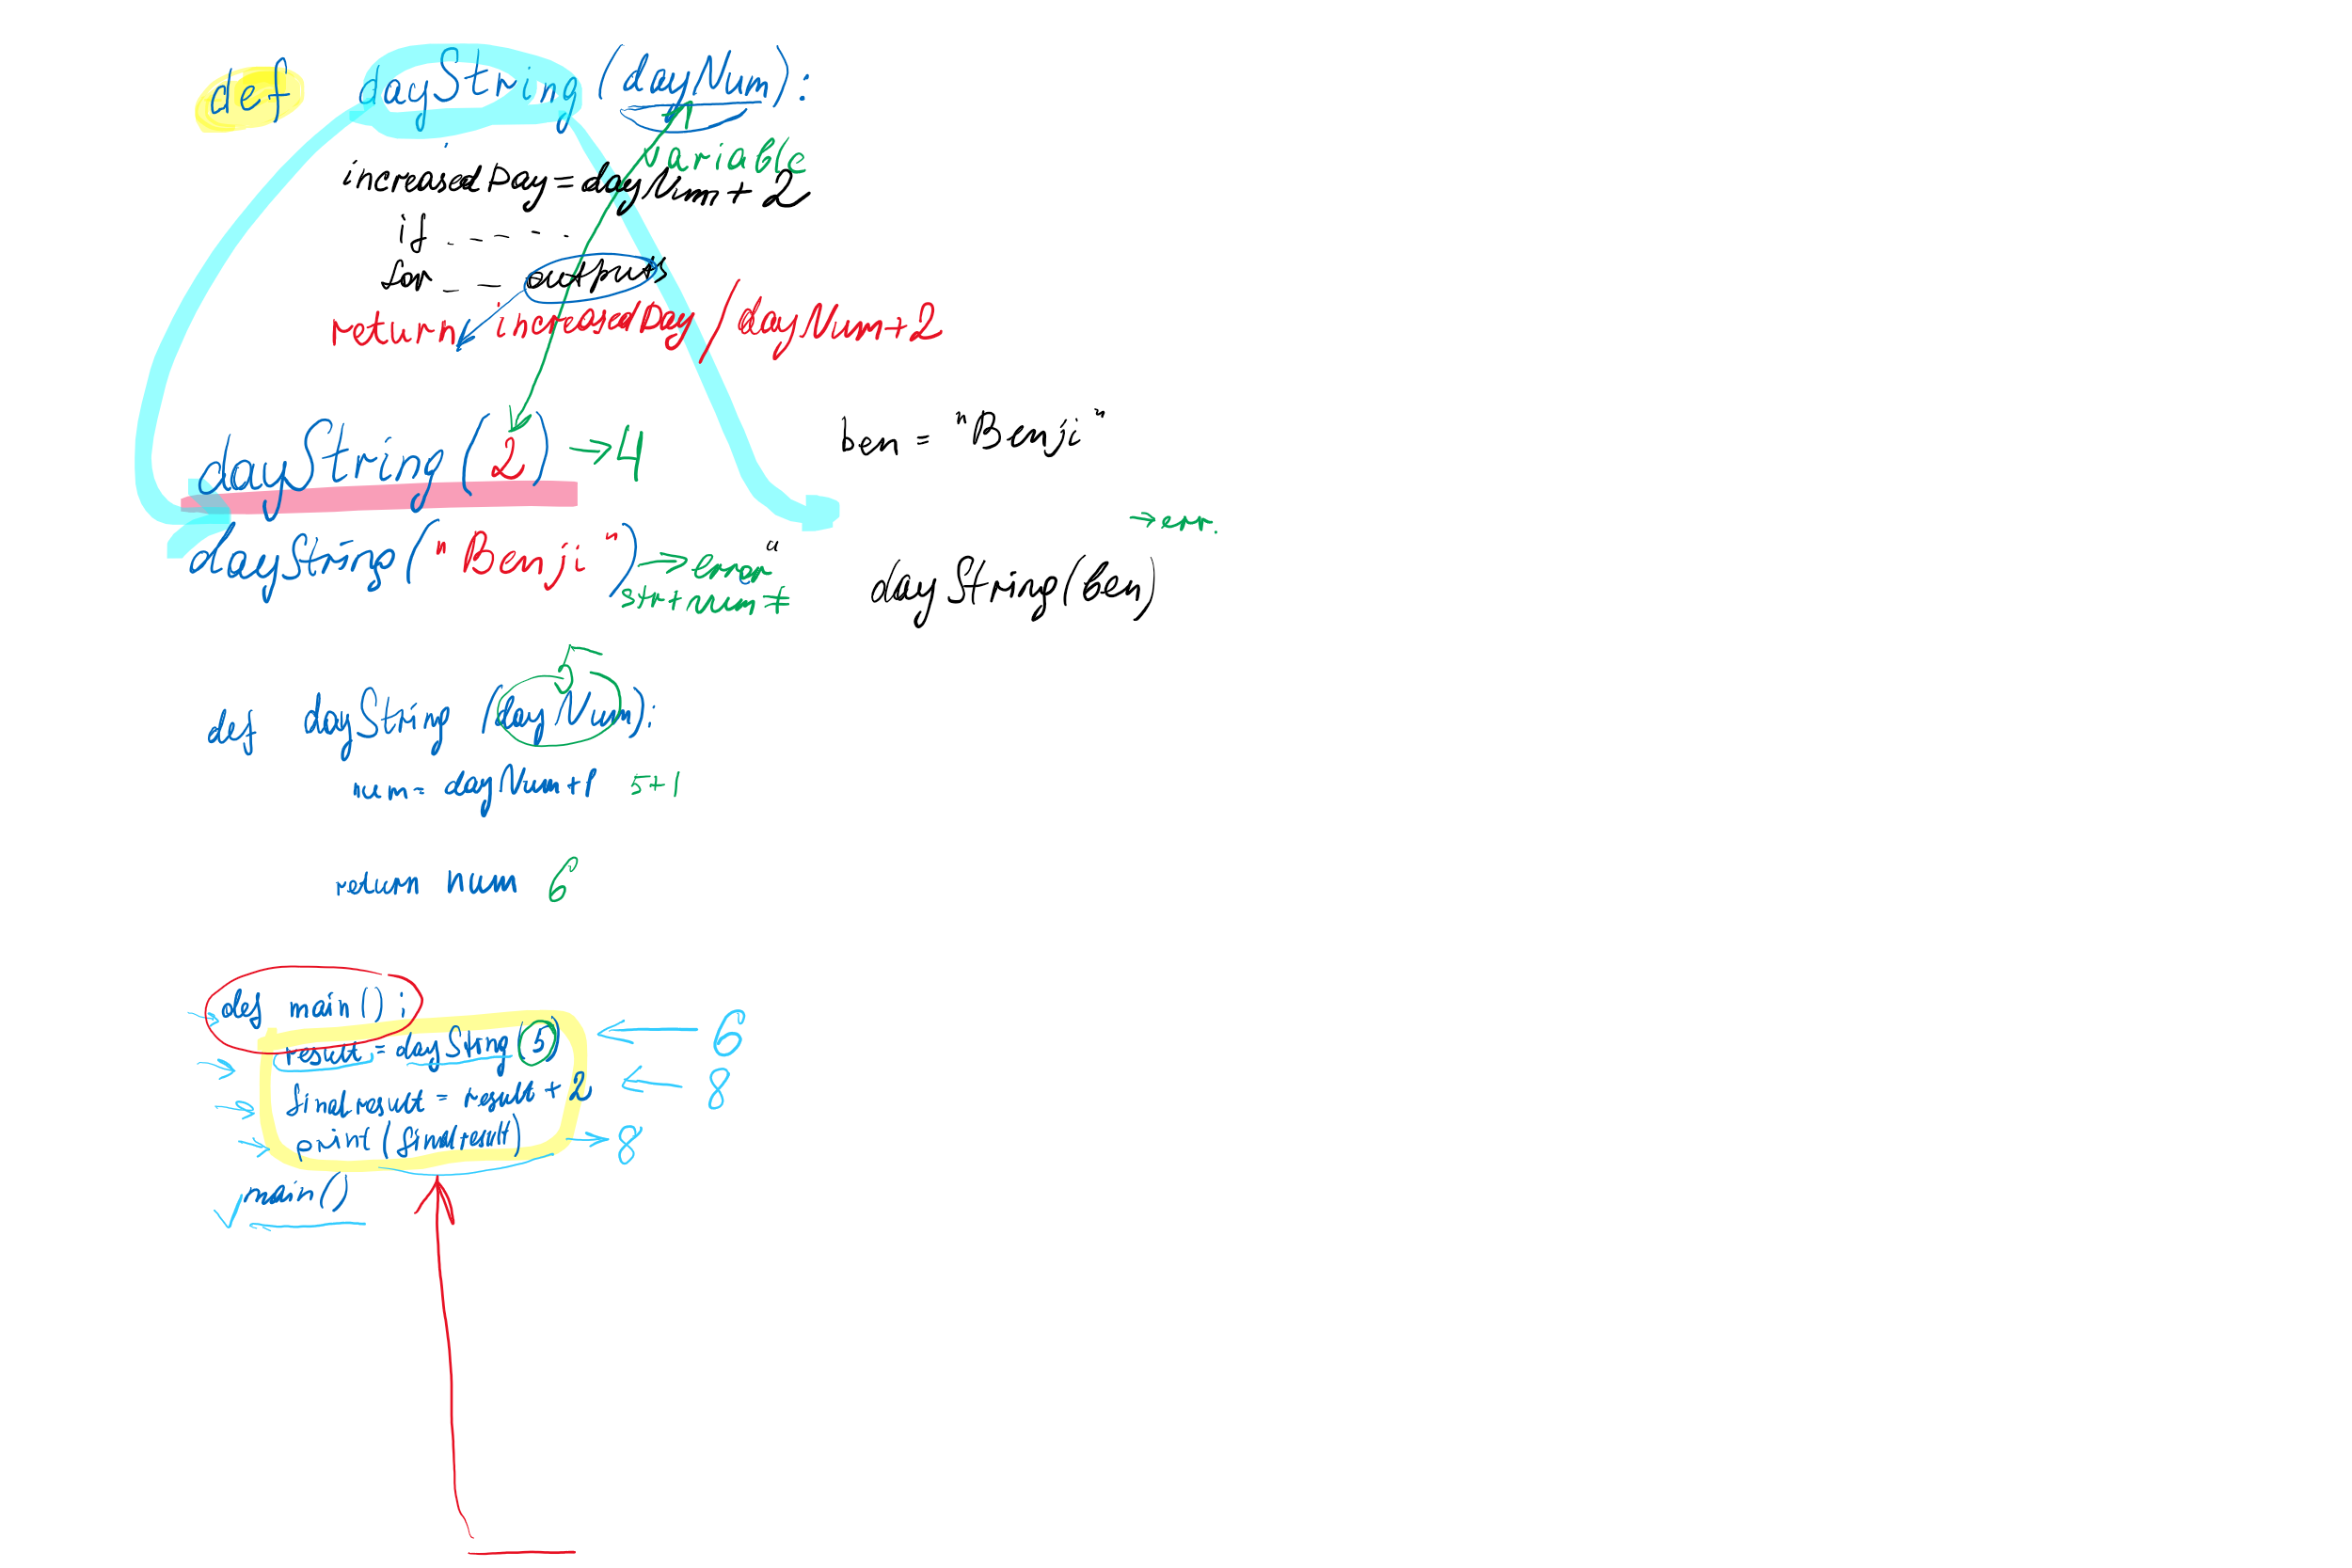 def dayString (dayNum):
variable
increasedDay = dayNum + 2
if _ _ _ - .
for _ _ outputs
return increasedDay / dayNum+2
dayString ( 2 ) → 4
ben = "Benji"
dayString ("Benji") → error
str + num ≠
→ err.
dayString(ben)
5
def dayString (dayNum):
num = dayNum+1 5+1
return num 6
def main():
result = dayString (5) ← 6
finalresult = result + 2 ← 8
print (finalresult) → 8
main()